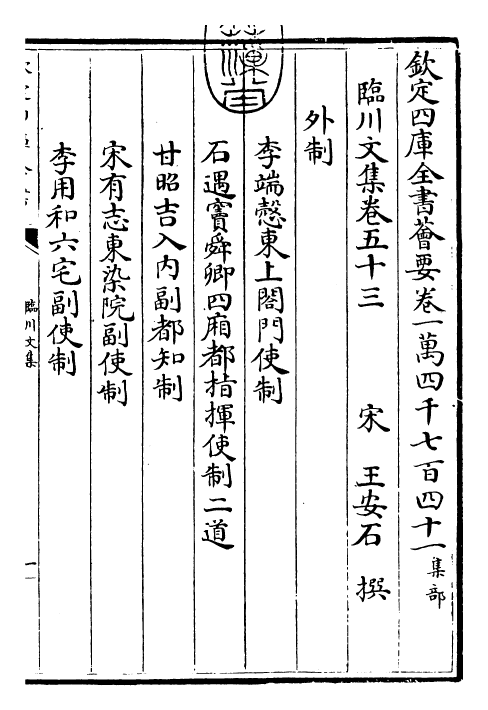 欽定四庫全書薈要卷一萬四千七百四十一集部
臨川文集卷五十三 宋 王安石 撰
外制
李端慤東上閤門使制
石遇竇舜卿四廂都指揮使制二道
甘昭吉入内副都知制
宋有志東染院副使制
李用和六宅副使制
臨川文集
一